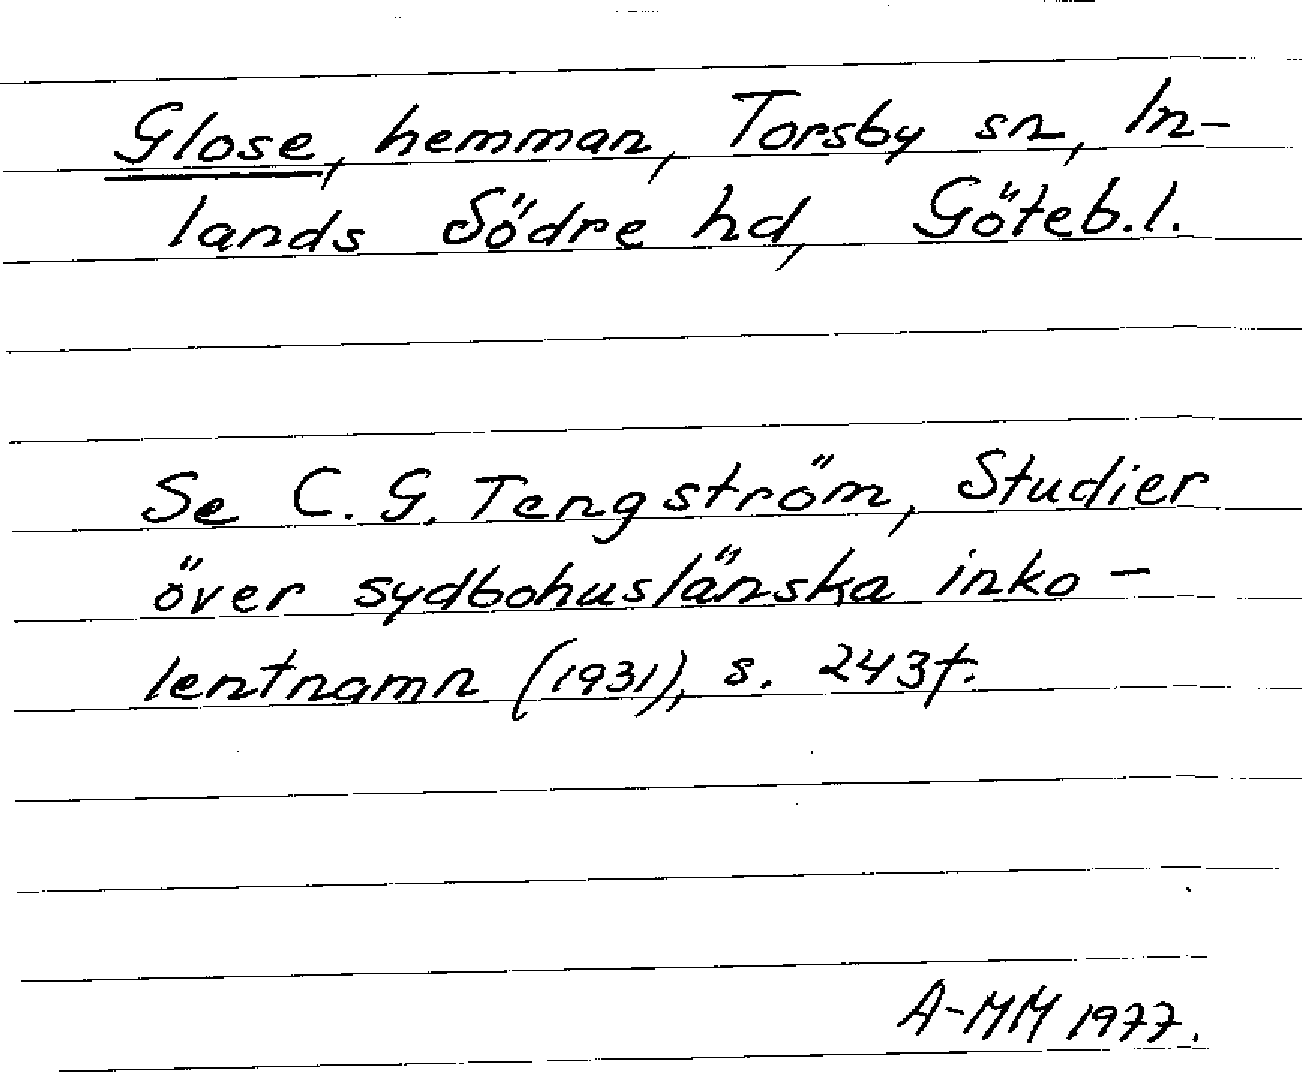 Glose, hemman, Torsby sn, In-
lands Södre hd, Göteb.l.
Se C. G. Tengström, Studier
över sydbohuslänska inko-
lentnamn (1931), s. 243f.
A-MM 1977.